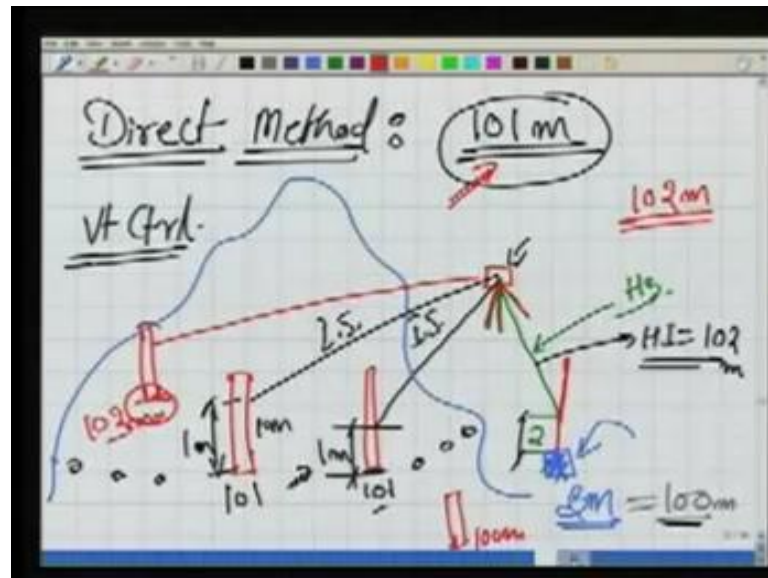 Direct Method : 101m
102m
Vt Ctrl.
I.S.
I.S.
HI = 102 m
1m
1m
2
101
101
BM = 100m
100m